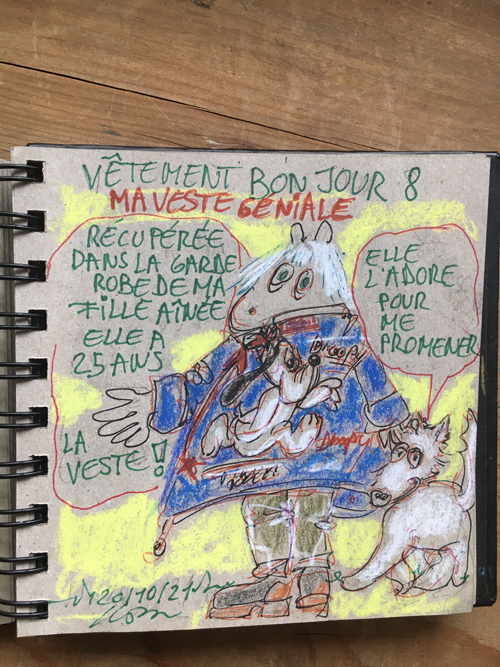 VÊTEMENT BONJOUR 8
MA VESTE GÉNIALE
RÉCUPÉRÉE
DANS LA GARDE
ROBE DE MA
FILLE AÎNÉE
ELLE A
25 ANS
LA
VESTE !
ELLE
L'ADORE
POUR
ME
PROMENER
20/10/21